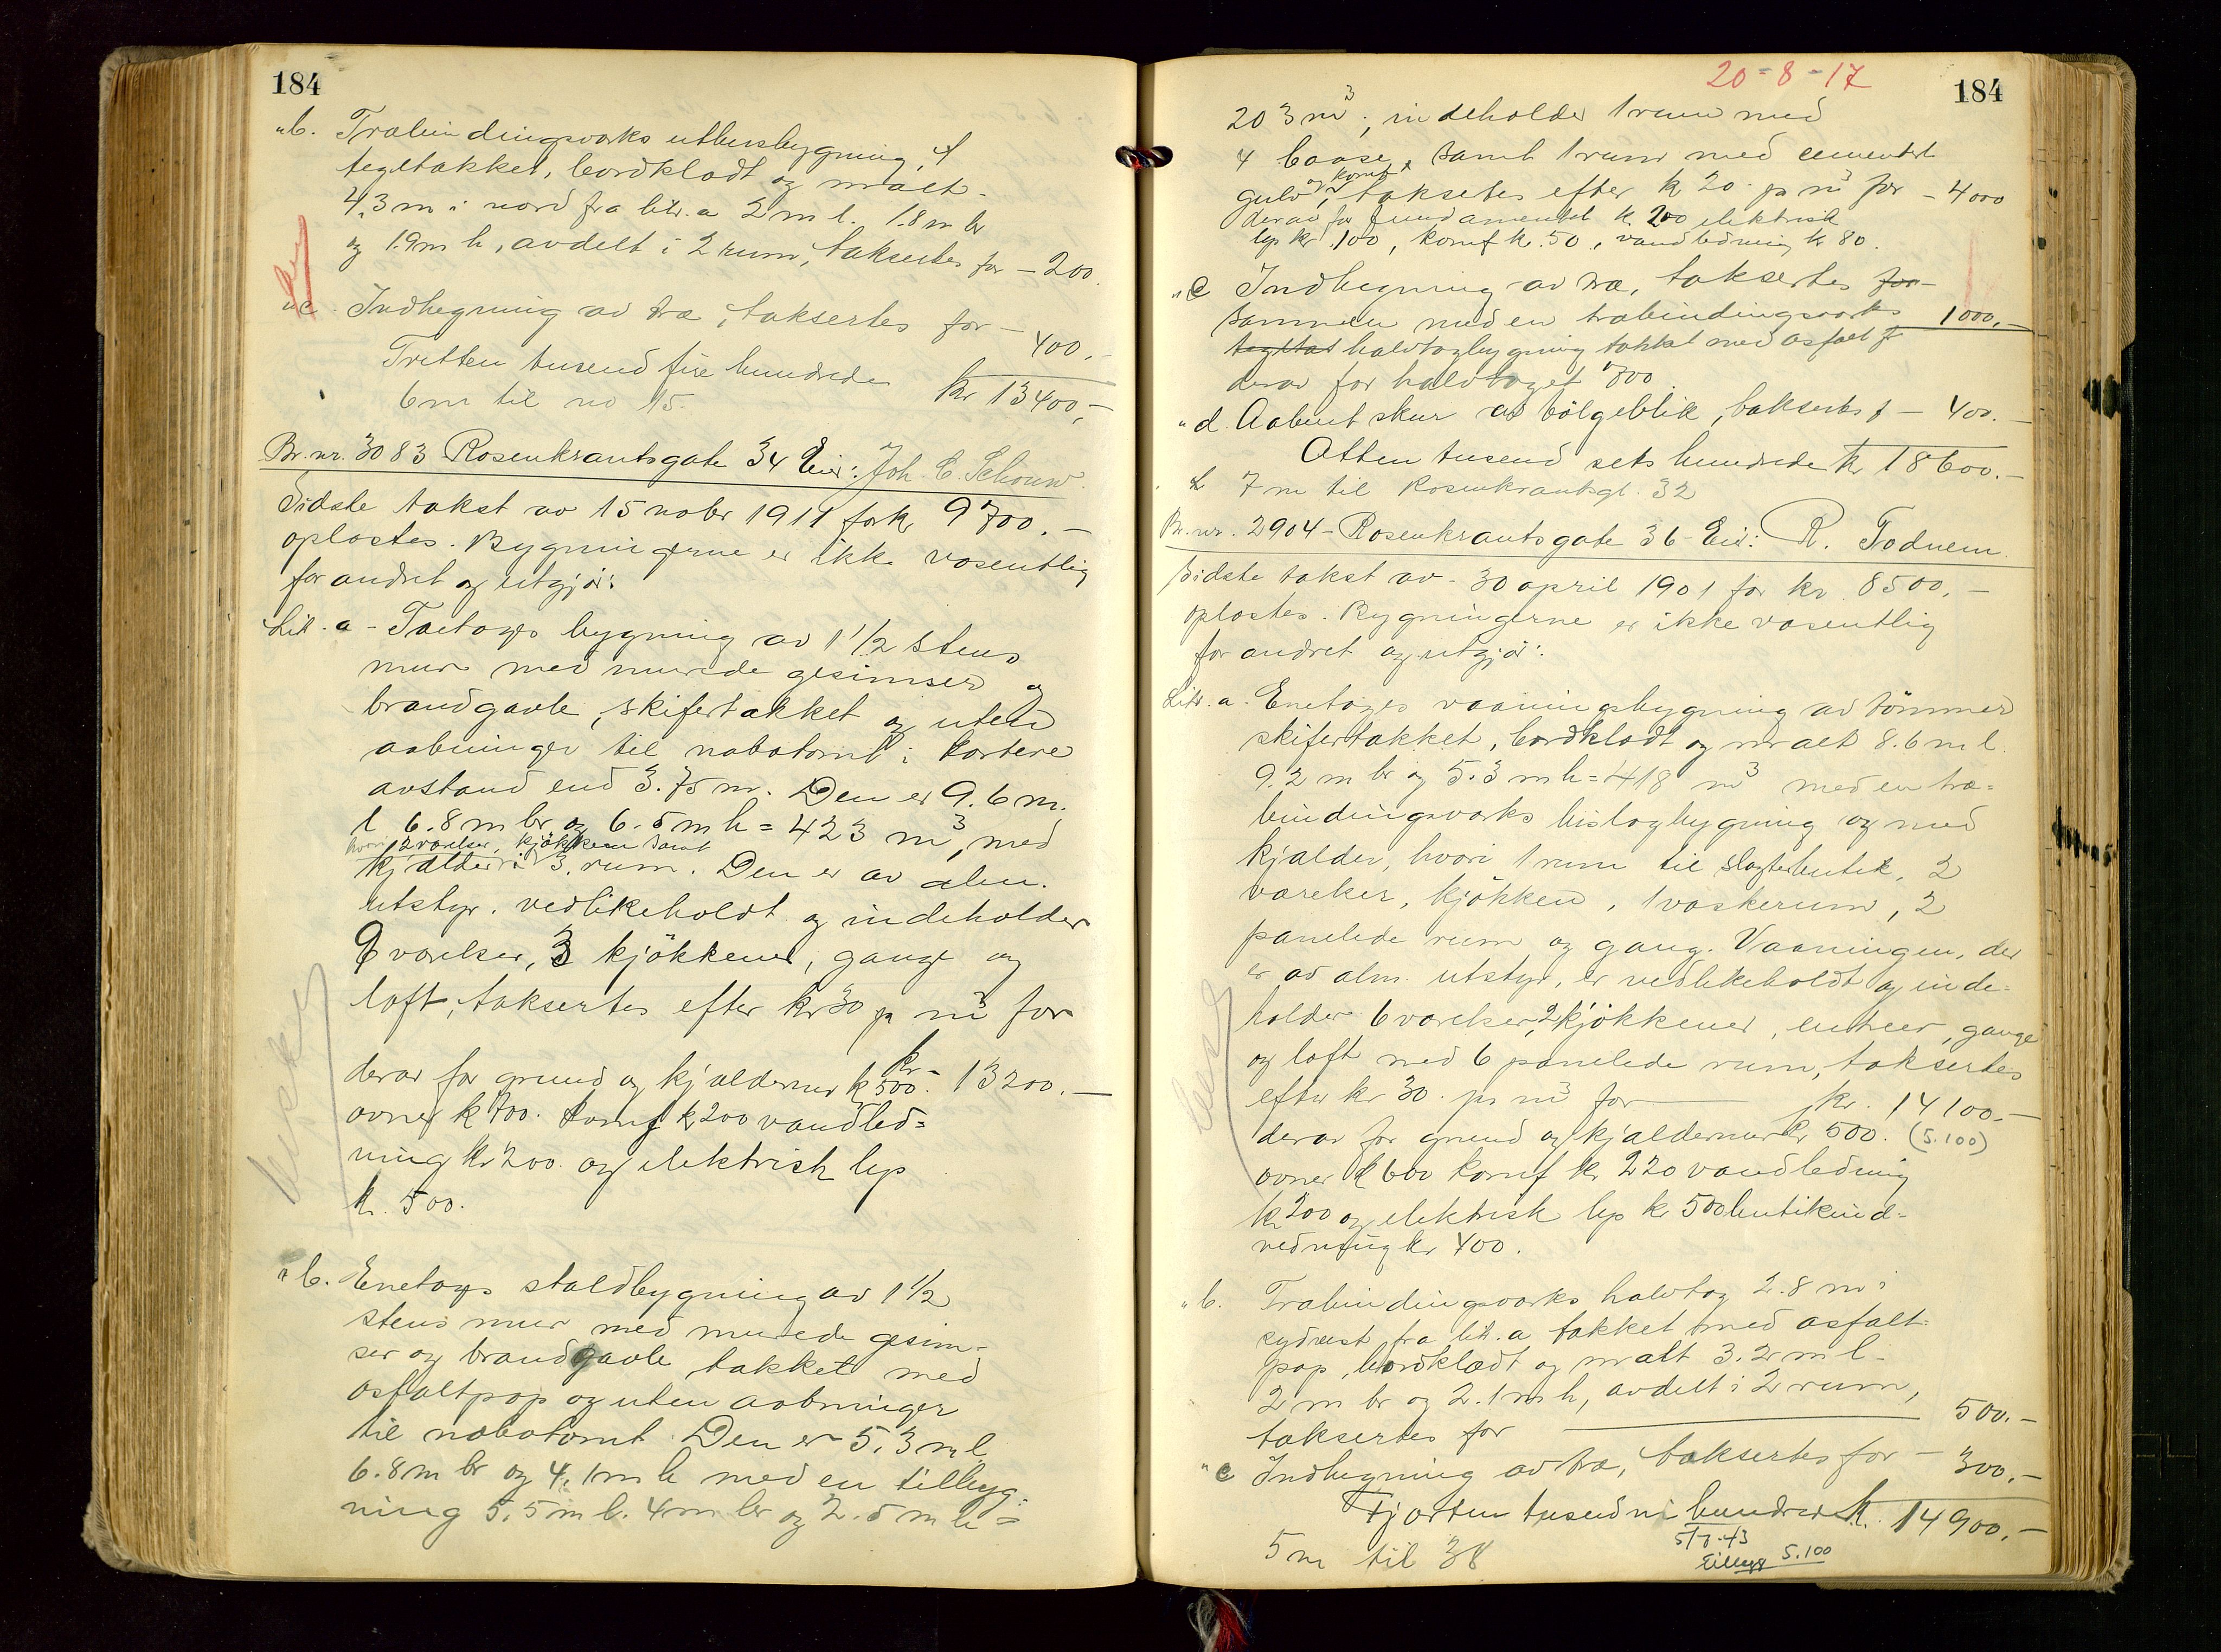 184
"b. Træbindingsverks uthusbygning, 4
tegltækket, bordklædt og maalt
4.3 m i nord fra litr. a 2 m l. 1.8 m br
og 1.9 m h, avdelt i 2 rum, taksertes for — 200.
"c Indhegning av træ, taksertes for — 400.—
Tretten tusend fire hundrede kr 13400,—
6 m til no 15.
Br. nr. 3083 Rosenkrantsgate 34 Eier: Joh. C. Schouw.
Sidste takst av 15 nobr 1911 for kr 9700.—
opløstes. Bygningerne er ikke væsentlig
forandret og utgjør:
Litr. a - Toetages bygning av 1 1/2 stens
mur med murede gesimser og
brandgavle, skifertækket og uten
aabninger til nabotomt i kortere
avstand end 3.75 m. Den er 9.6 m.
l 6.8 m br og 6.5 m h = 423 m3, med
hvori 2 værelser, kjøkken samt
kjælder i 3 rum. Den er av alm.
utstyr. vedlikeholdt og indeholder
9 værelser, 3 kjøkkener, gange og
loft, taksertes efter kr 30 pr m3 for
kr — 13200.—
derav for grund og kjældermur kr 500.
ovner kr 700. komf kr 200 vandled=
ning kr 200. og elektrisk lys
kr. 500.
"b. Enetages staldbygning av 1 1/2
stens mur med murede gesim-
ser og brandgavle tækket med
asfaltpap og uten aabninger
til nabotomt. Den er 5.3 m l
6.8 m br og 4.1 m h med en tilbyg=
ning 5.5 m l. 4 m br og 2.5 m h =
20-8-17
184
203 m3, indeholder 1 rum med
4 baase, samt 1 rum med cementert
og komf.
gulv, taksertes efter kr 20. pr m3 for — 4000
derav for fundamentet kr 200 elektrisk
lys kr. 100, komf kr. 50, vandledning kr 80.
"c Indhegning av træ, taksertes for
sammen med en træbindingsverks 1000.—
tegltæk halvtagbygning tækket med asfalt p
derav for halvtaget 700
"d. Aabent skur av bølgeblik, taksertes f — 400.—
Atten tusend seks hundrede kr 18600.—
7 m til Rosenkrantsgt. 32
Br. nr. 2904 - Rosenkrantsgate 36 - Eier: R. Todnem.
Sidste takst av 30 april 1901 for kr. 8500.—
opløstes. Bygningerne er ikke væsentlig
forandret og utgjør:
Litr. a. Enetages vaaningsbygning av tømmer
skifertækket, bordklædt og maalt 8.6 m l.
9.2 m br og 5.3 m h = 418 m3 med en træ=
bindingsverks bislagbygning og med
kjælder, hvori 1 rum til slagterbutik, 2
værelser, kjøkken, 1 vaskerum, 2
panelede rum og gang. Vaaningen, der
er av alm. utstyr, er vedlikeholdt og inde=
holder 6 værelser, 2 kjøkkener, entreer, gange
og loft med 6 panelede rum, taksertes
efter kr 30. pr m3 for — kr. 14100.—
derav for grund og kjældermur kr 500. (5.100)
ovner kr 600 komf kr 220 vandledning
kr 200 og elektrisk lys kr 500 butikind-
redning kr 400.
"b. Træbindingsverks halvtag 2.8 m i
sydvest fra litr. a tækket med asfalt-
pap, bordklædt og maalt 3.2 m l.
2 m br og 2.1 m h, avdelt i 2 rum,
taksertes for — 500.—
"c Indhegning av træ, taksertes for — 300.—
Fjorten tusend ni hundrede kr. 14900.—
5 m til 38
5/7-43
Tillegg 5.100